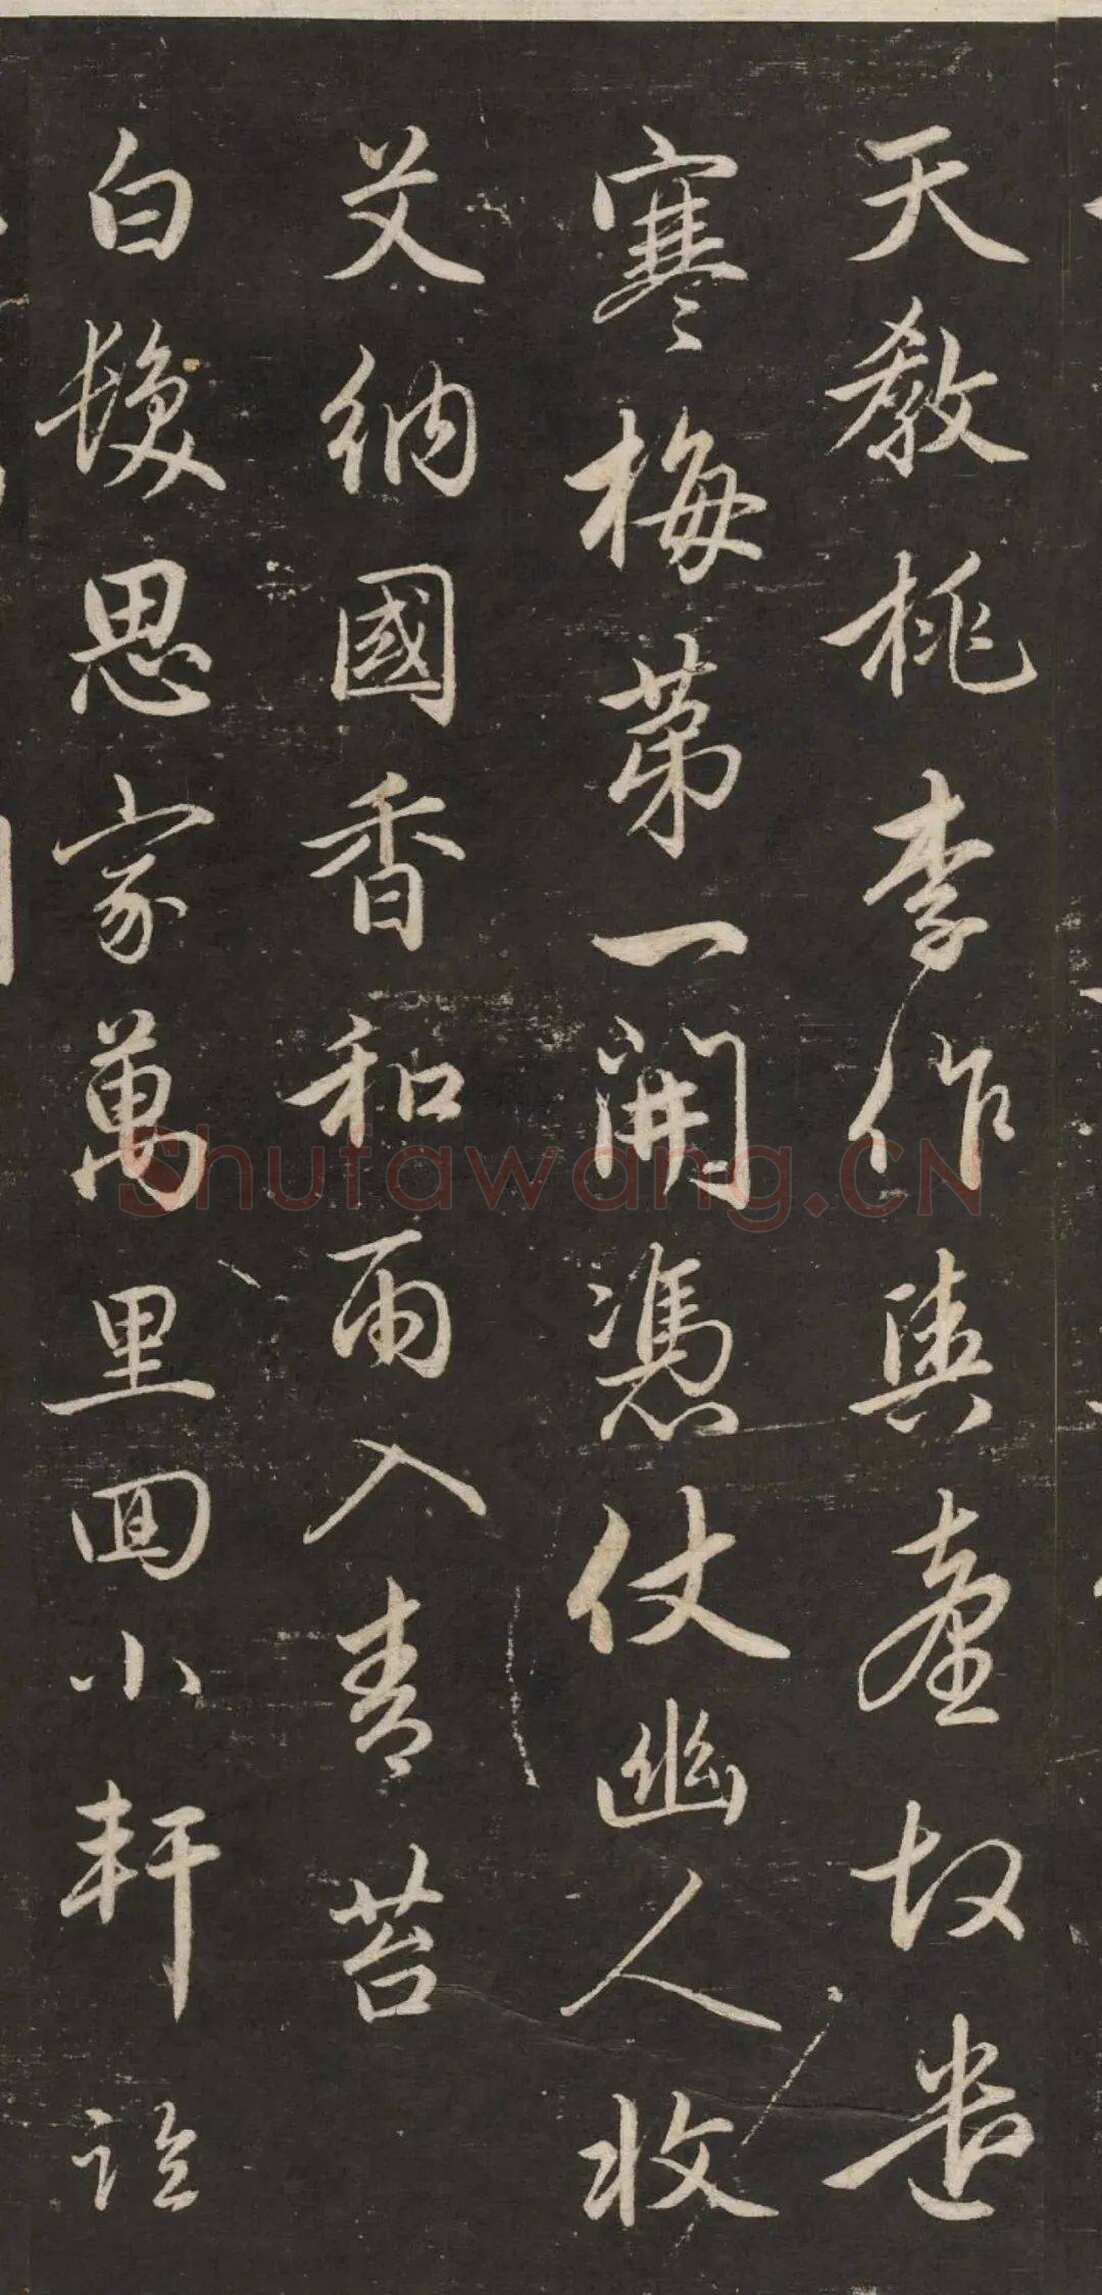 天教桃李作輿臺故遣
寒梅第一開憑仗幽人收
艾納國香和雨入青苔
白髮思家萬里回小軒
Shufawang.CN